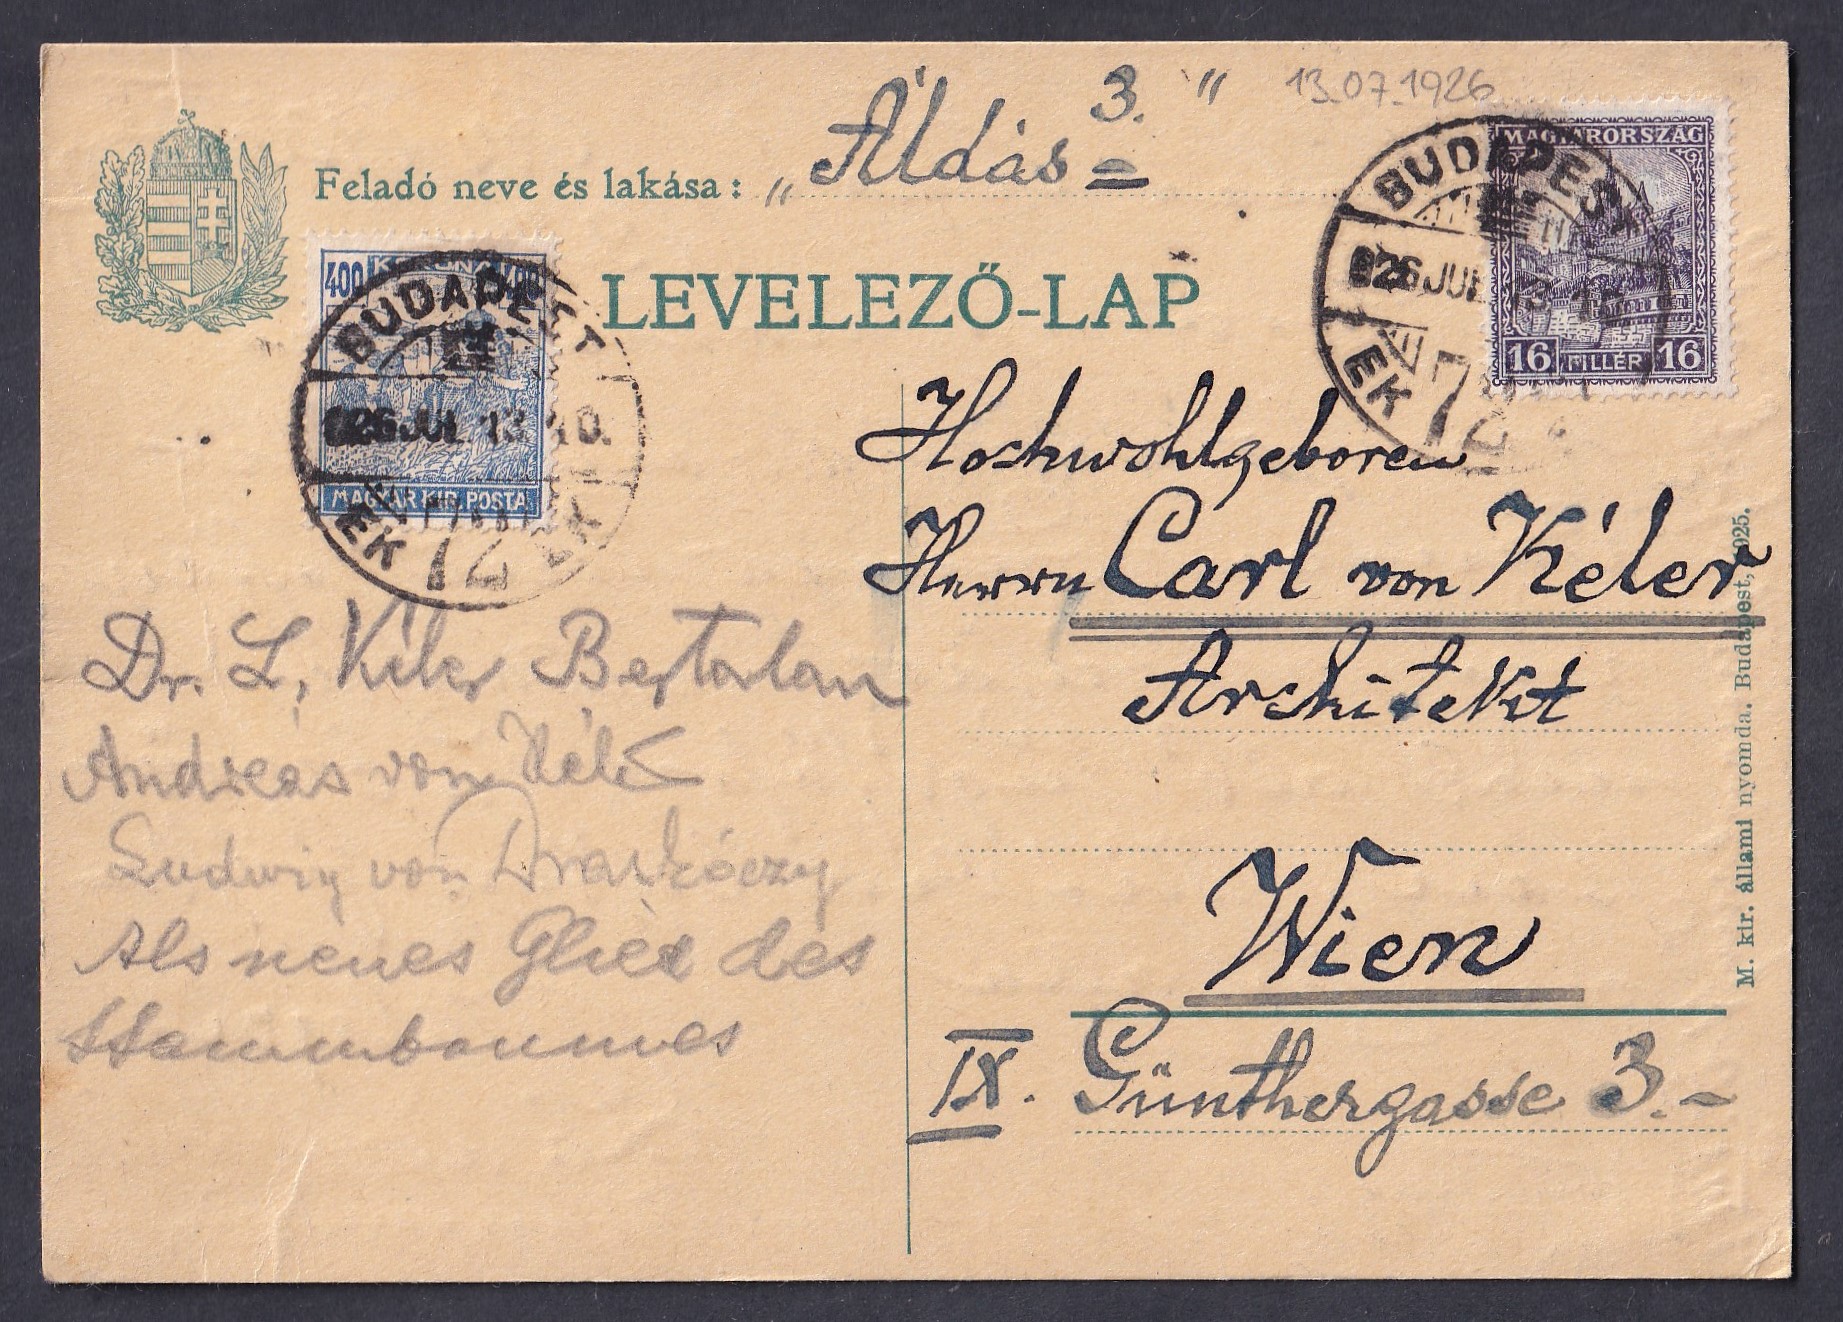 13.07.1926
Feladó neve és lakása: „Áldás 3. "
LEVELEZŐ-LAP
400 KORONA 400
MAGYAR KIR. POSTA.
BUDAPEST
926 JUL. 13. 10.
EK 72 EK
MAGYARORSZÁG
16 FILLÉR 16
BUDAPEST
926 JUL. 13. 1
EK 72
Hochwohlgeboren
Herrn Carl von Kéler
Architekt
Wien
IX. Günthergasse 3.-
Dr. L. Kéler Bertalan
Andreas von Kélé
Ludwig von Draskóczy
Als neues Glied des
Stammbaumes
M. kir. állami nyomda. Budapest, 1925.